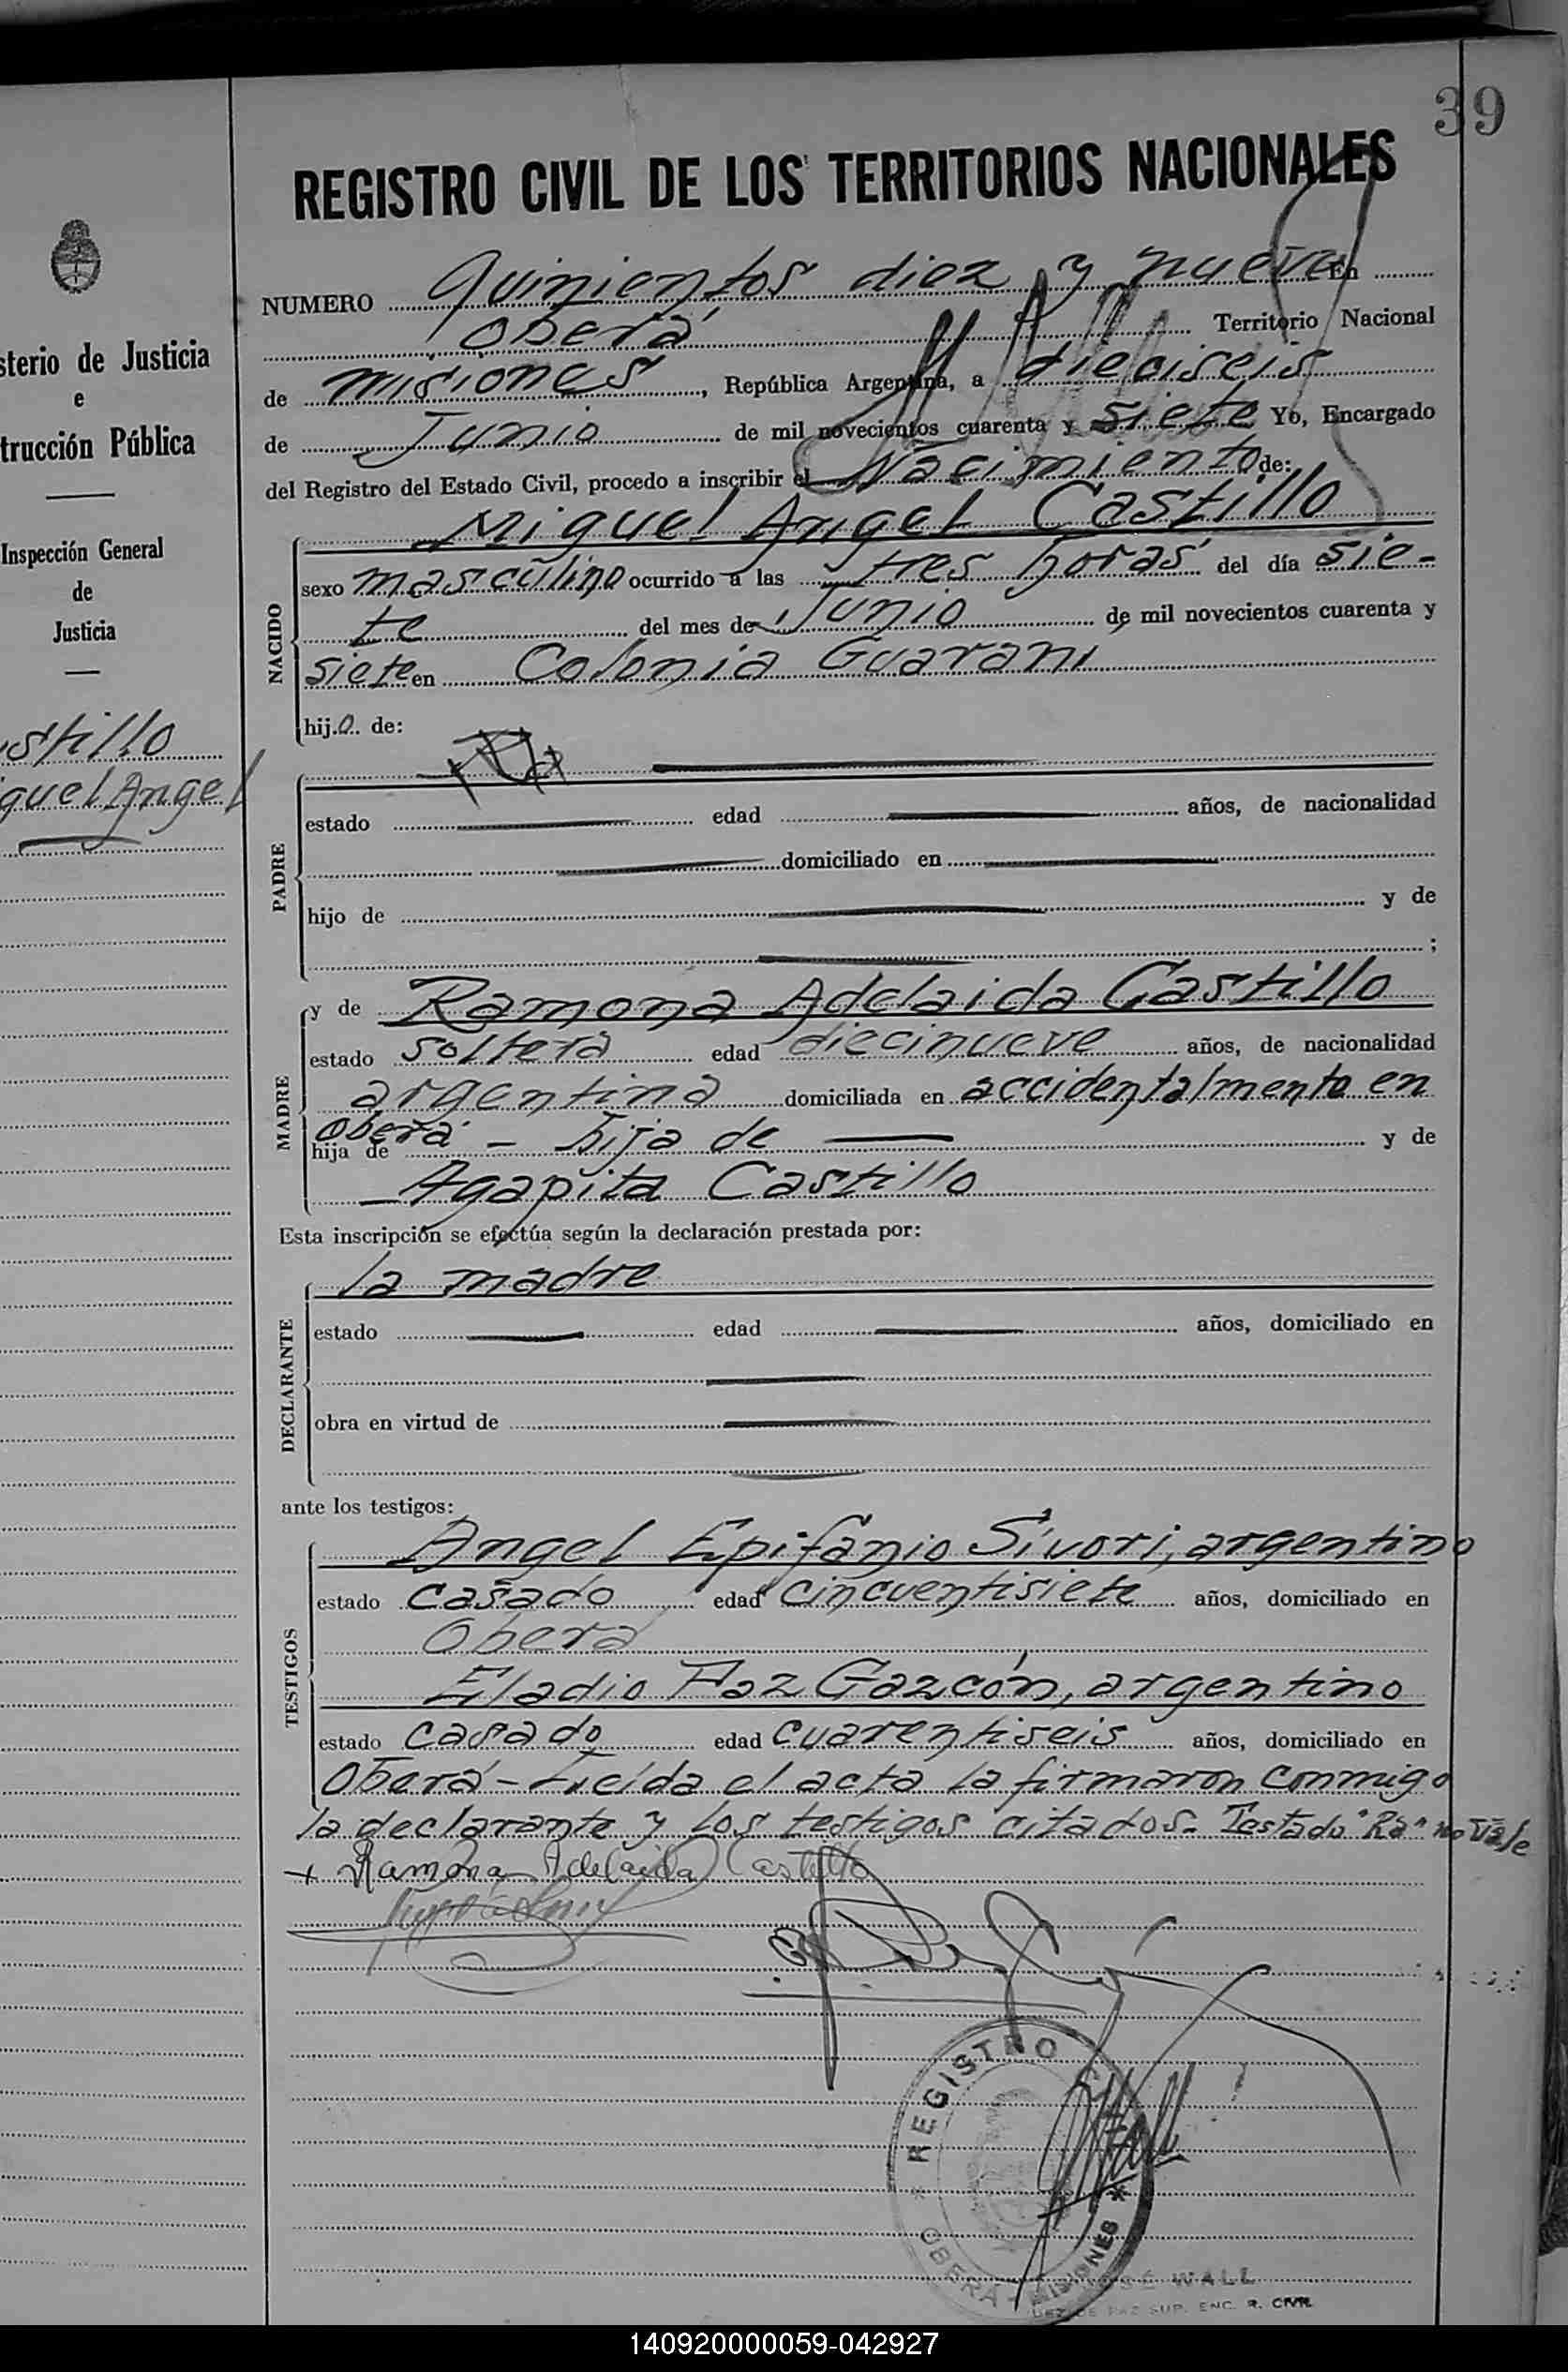 39
REGISTRO CIVIL DE LOS TERRITORIOS NACIONALES
sterio de Justicia
e
trucción Pública
Inspección General
de
Justicia
stillo
guel Angel
NUMERO Quinientos diez y nueve En
Oberá Territorio Nacional
de Misiones, República Argentina, a dieciseis
de Junio de mil novecientos cuarenta y siete Yo, Encargado
del Registro del Estado Civil, procedo a inscribir el Nacimiento de:
NACIDO
Miguel Angel Castillo
sexo masculino ocurrido a las tres horas del día sie-
te del mes de Junio de mil novecientos cuarenta y
siete en Colonia Guarani
hijo de:
PADRE
Ra
estado edad años, de nacionalidad
domiciliado en
hijo de y de
;
MADRE
y de Ramona Adelaida Castillo
estado soltera edad diecinueve años, de nacionalidad
argentina domiciliada en accidentalmente en
Oberá - hija de
hija de y de
Agapita Castillo
Esta inscripción se efectúa según la declaración prestada por:
DECLARANTE
la madre
estado edad años, domiciliado en
obra en virtud de
ante los testigos:
TESTIGOS
Angel Epifanio Sívori, argentino
estado casado edad cincuentisiete años, domiciliado en
Oberá
Eladio Paz Gazcón, argentino
estado casado edad cuarentiseis años, domiciliado en
Oberá - Leída el acta la firmaron conmigo
la declarante y los testigos citados. Testado "Ra" no vale
+ Ramona Adelaida Castillo
REGISTRO
OBERA - MISIONES
WALL
JUEZ DE PAZ SUP. ENC. R. CIVIL
140920000059-042927